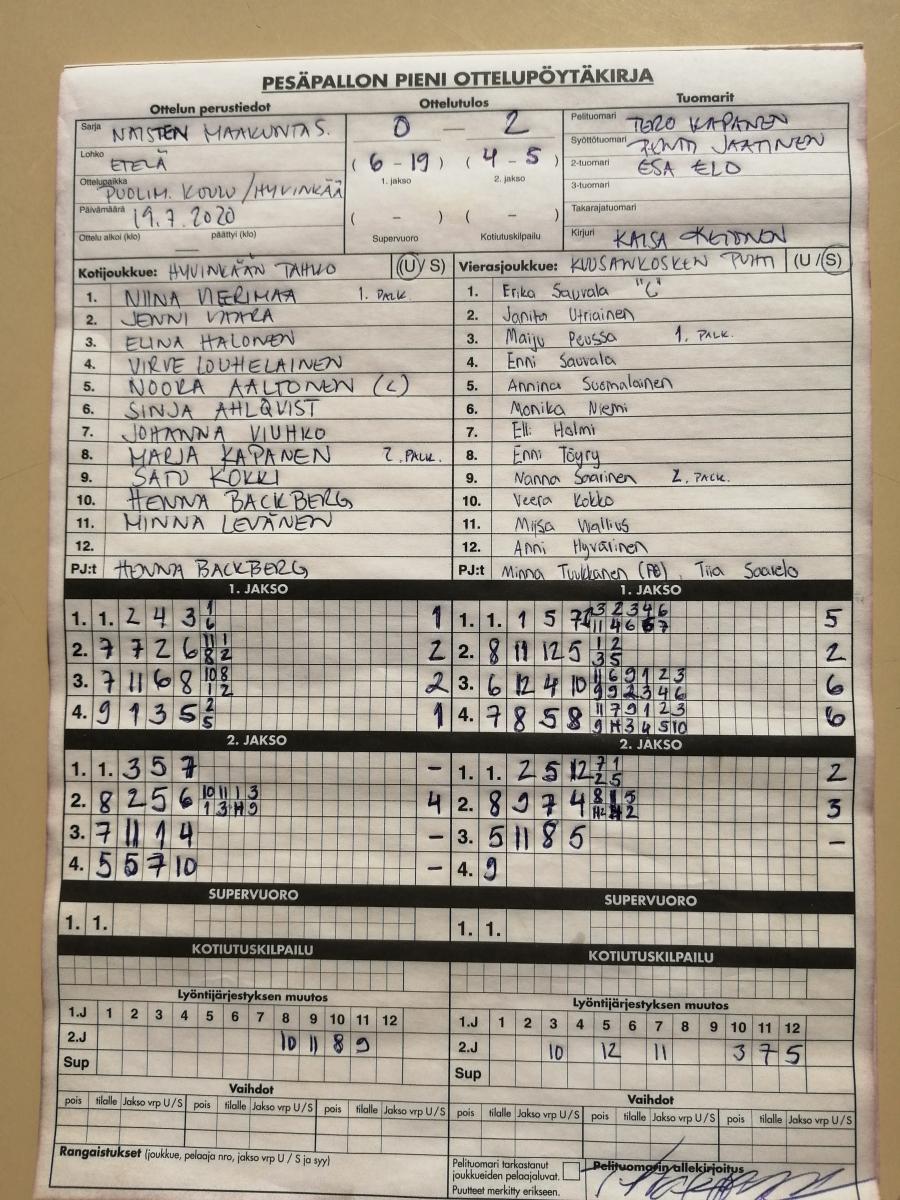 PESÄPALLON PIENI OTTELUPÖYTÄKIRJA
Ottelun perustiedot Ottelutulos Tuomarit
Sarja NAISTEN MAAKUNTAS. 0 — 2 Pelituomari TERO KAPANEN
Lohko ETELÄ (6 - 19) (4 - 5) Syöttötuomari JAATINEN
Ottelupaikka PUOLIM. KOULU/HYVINKÄÄ 1. jakso 2. jakso 2-tuomari ESA ELO
Päivämäärä 19.7.2020 ( - ) ( - ) 3-tuomari
Takarajatuomari
Ottelu alkoi (klo) — päättyi (klo) Supervuoro Kotiutuskilpailu Kirjuri KAISA
Kotijoukkue: HYVINKÄÄN TAHKO (U/S) Vierasjoukkue: KUUSANKOSKEN PUHTI (U/S)
1. NIINA VIERIMAA 1. PALK 1. Erika Sauvala "C"
2. JENNI VAARA 2. Janita Utriainen
3. ELINA HALONEN 3. Maiju Peussa 1. PALK.
4. VIRVE LOUHELAINEN 4. Enni Sauvala
5. NOORA AALTONEN (C) 5. Annina Suomalainen
6. SINJA AHLQVIST 6. Monika Niemi
7. JOHANNA VIUHKO 7. Elli Holmi
8. MARJA KAPANEN 2. PALK. 8. Enni Töyry
9. SATU KOKKI 9. Nanna Saarinen 2. PALK.
10. HENNA BACKBERG 10. Veera Kokko
11. MINNA LEVÄNEN 11. Miisa Wallius
12. 12. Anni Hyvärinen
PJ:t HENNA BACKBERG PJ:t Minna Tuukkanen (PE), Tiia Saarelo
1. JAKSO 1. JAKSO
1. 1. 2 4 3 1 6 1 1. 1. 1 5 7 5
2. 7 7 2 6 11 1 8 2 2 2. 8 11 12 5 1 2 3 5 2
3. 7 11 6 8 10 8 1 2 2 3. 6 12 4 10 11 6 9 1 2 3 9 9 2 3 4 6 6
4. 9 1 3 5 2 5 1 4. 7 8 5 8 11 7 9 1 2 3 6
2. JAKSO 2. JAKSO
1. 1. 3 5 7 – 1. 1. 2 5 12 7 1 2 5 2
2. 8 2 5 6 10 11 1 3 4 2. 8 9 7 4 3
3. 7 11 1 4 – 3. 5 11 8 5 –
4. 5 5 7 10 – 4. 9
SUPERVUORO SUPERVUORO
1. 1. 1. 1.
KOTIUTUSKILPAILU KOTIUTUSKILPAILU
Lyöntijärjestyksen muutos Lyöntijärjestyksen muutos
1.J 1 2 3 4 5 6 7 8 9 10 11 12 1.J 1 2 3 4 5 6 7 8 9 10 11 12
2.J 10 11 8 9 2.J 10 12 11 3 7 5
Sup Sup
Vaihdot Vaihdot
pois tilalle Jakso vrp U/S pois tilalle Jakso vrp U/S pois tilalle Jakso vrp U/S pois tilalle Jakso vrp U/S pois tilalle Jakso vrp U/S pois tilalle Jakso vrp U/S
Rangaistukset (joukkue, pelaaja nro, jakso vrp U / S ja syy) Pelituomari tarkastanut Pelituomarin allekirjoitus
joukkueiden pelaajaluvat.
Puutteet merkitty erikseen.